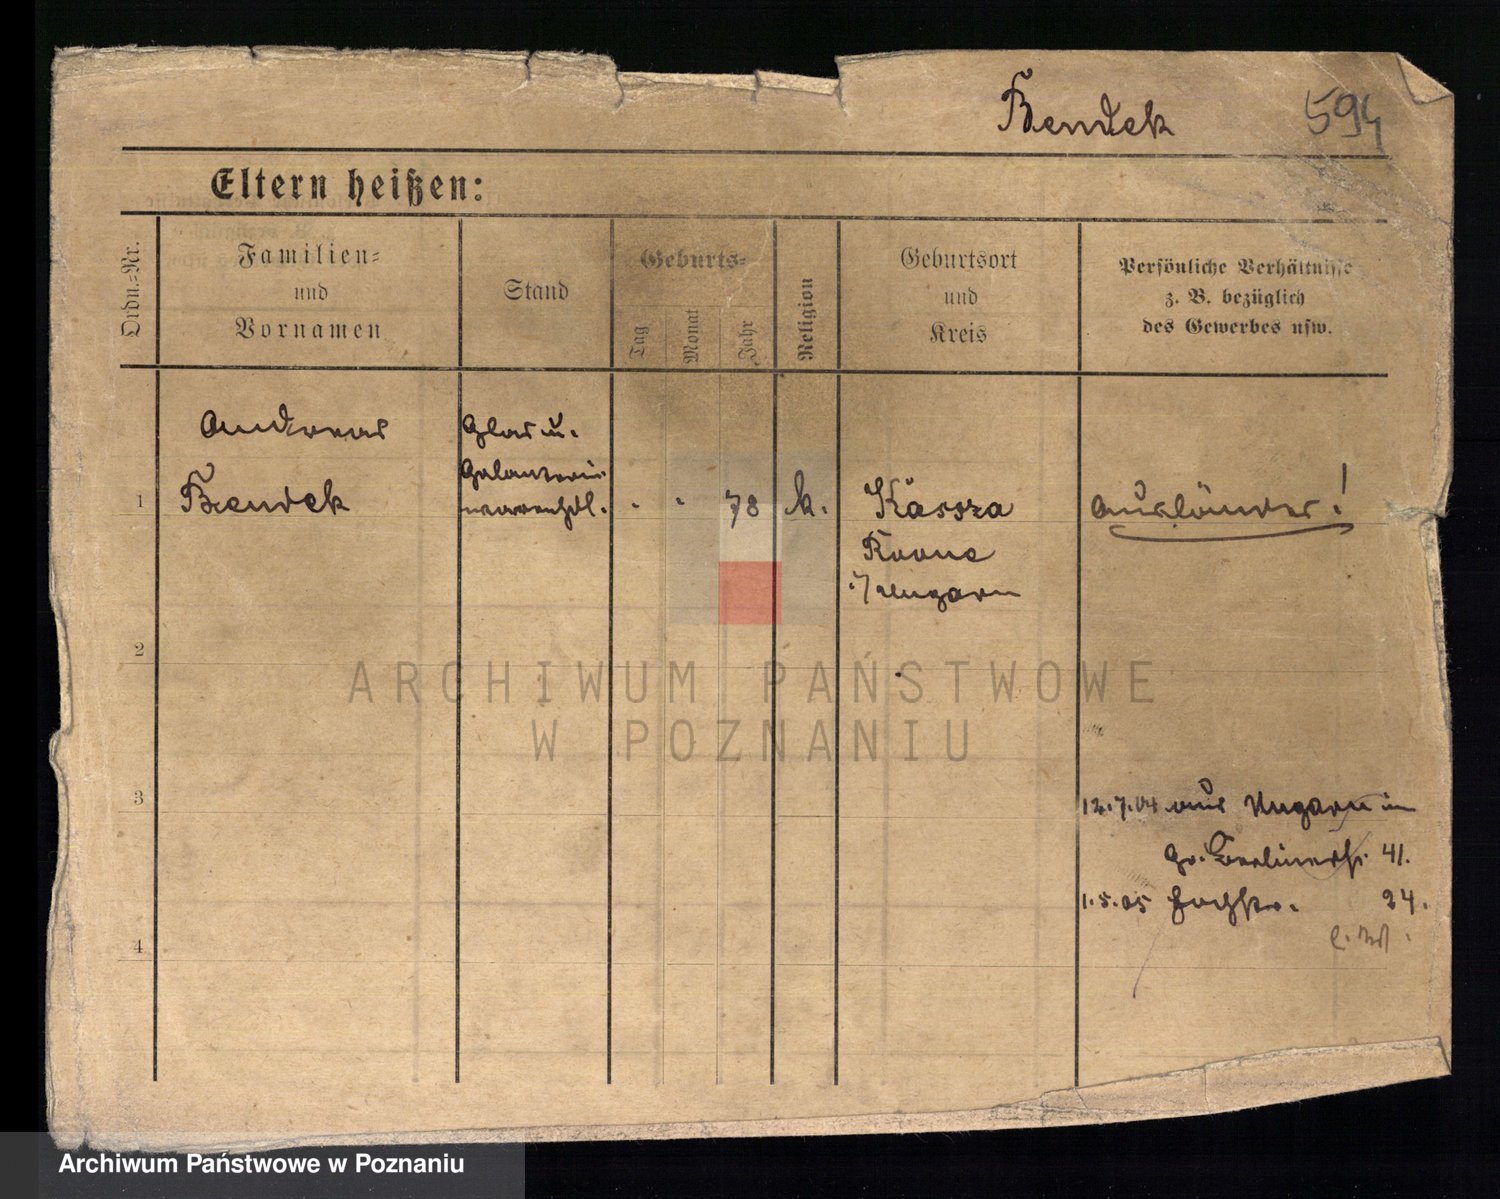 Bendek 594
Eltern heißen:
Ordn.-Nr.
Familien-
und
Vornamen
Stand
Geburts-
Tag
Monat
Jahr
Religion
Geburtsort
und
Kreis
Persönliche Verhältnisse
z. B. bezüglich
des Gewerbes usw.
Andreas
Glas u.
Galanterie
1 Bendek warenhdl. " " 78 k. Kassza Ausländer!
Ungarn
2
ARCHIWUM PAŃSTWOWE
W POZNANIU
3
12.7.04 aus Ungarn in
Gr. Berlinerstr. 41.
1.5.05 Hochstr. 24.
4
Archiwum Państwowe w Poznaniu